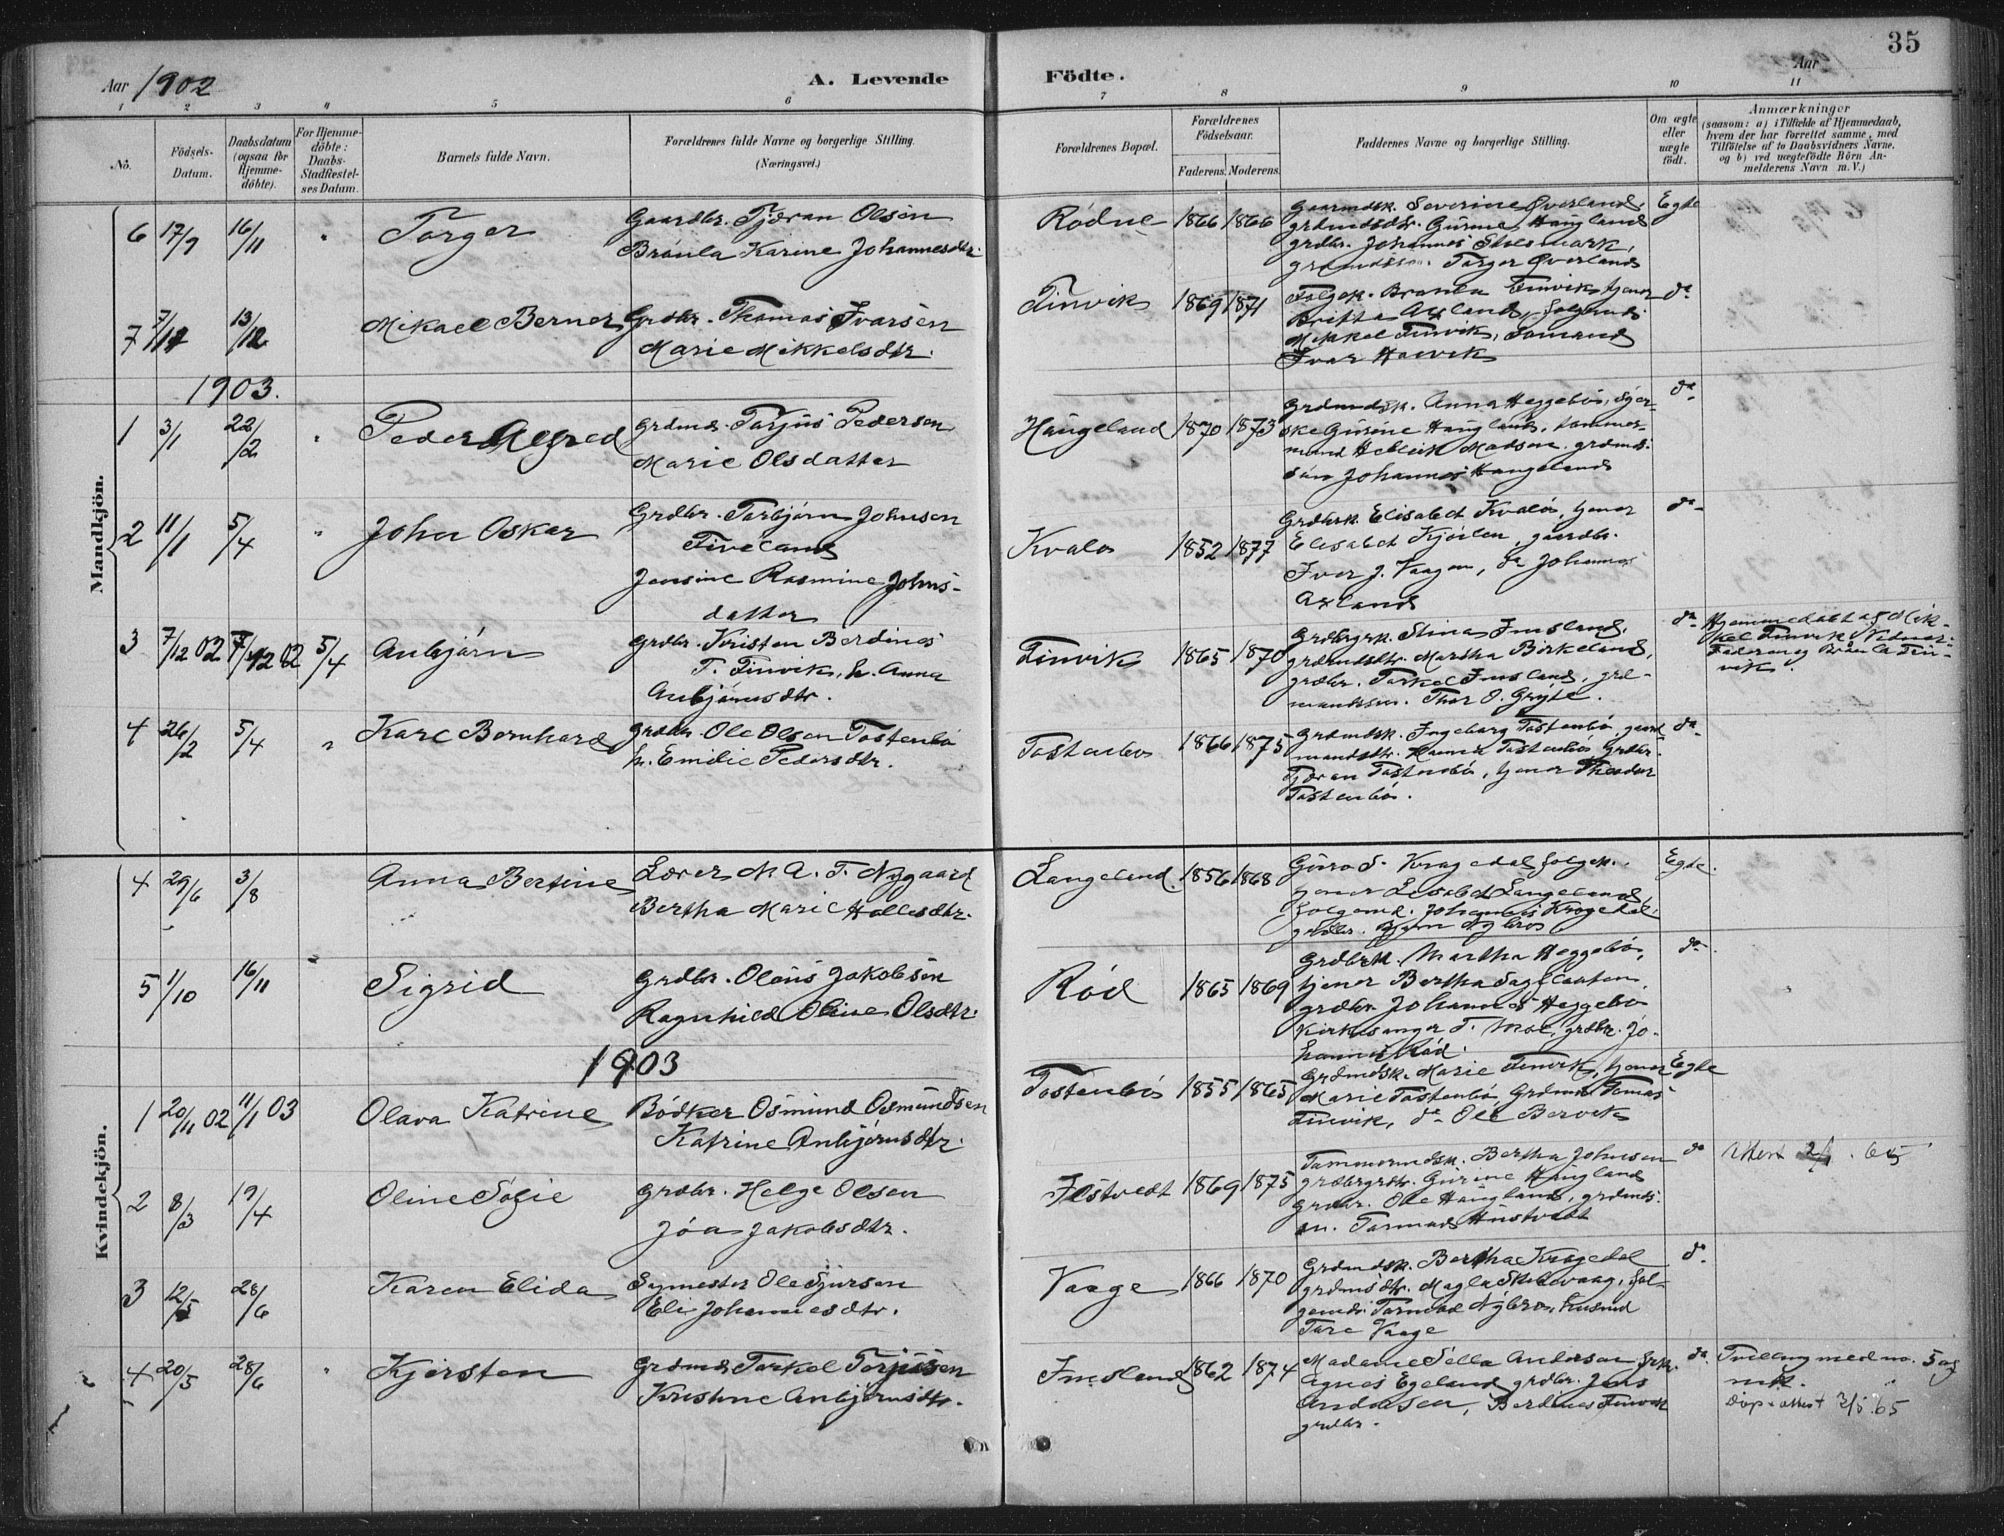 35
Aar 1902
A. Levende Födte.
Aar
1 2 3 4 5 6 7 8 9 10 11
No.
Födsels-Datum.
Daabsdatum (ogsaa for Hjemme-döbte).
For Hjemme-döbte: Daabs-Stadfæstel-ses Datum.
Barnets fulde Navn.
Forældrenes fulde Navne og borgerlige Stilling. (Næringsvei.)
Forældrenes Bopæl.
Forældrenes Födselsaar.
Faderens. Moderens.
Faddernes Navne og borgerlige Stilling.
Om ægte eller uægte födt.
Anmærkninger
(saasom: a) i Tilfælde af Hjemmedaab,
hvem der har forrettet samme, med
Tilföielse af to Daabsvidners Navne,
og b) ved uægtefödte Börn An-
melderens Navn m. V.)
Mandkjön.
6 17/9 16/11 " Torger
Gaardbr. Tjæran Olsen
Brønla Karine Johannesdtr.
Rødne 1866 1866
Gaarmdsk. Severine Øverland,
grdmdsdtr. Gurine Haugland
grdbr. Johannes Stolsmark,
grdmdssøn. Torger Øverland
Egte
7 7/11 13/12 Mikael Berner
Grdbr. Thomas Ivarsen
Marie Mikkelsdtr.
Finvik 1869 1871
Folgek. Bronla Finvik, tjener
Britha Axland, folgemd.
Mikkel Finvik,
Ivar
do
1903.
1 3/1 22/2 " Peder Alfred
grdmd. Torjus Pedersen
Marie Olsdatter
Haugeland 1870 1873
Grdmdsk. Anna Heggebø, syer-
ske Gurine Haugland, tømmer-
mand Madsen. grdmds-
søn Johannes Haugeland
do
2 11/1 5/4 " John Oskar
Grdbr. Torbjørn Johnsen
Tveland
Jensine Rasmine Johns-
datter
Kvalø 1852 1877
Grdbrk. Elisabet Kvalø, tjener
Elisabet Kjørlen, gaardbr.
Iver J. Vaagen, do Johannes
Axland
do
3 7/12 02 7/12 02 5/4 Anbjørn
Grdbr. Kristen Berdines
T. Finvik, h. Anna
Anbjørnsdtr.
Finvik 1865 1870
Grdbrgrk. Stina Imsland,
grdmdsdtr. Martha Birkeland,
grdbr. Torkel Imsland, grd-
mandssøn. Thor O. Grýte.
do
Hjemmedøbt af Mik-
kel Finvik. Vidner:
Faderen og Brønla Fin-
vik
4 26/2 5/4 " Karl Bernhard
Grdbr. Ole Olsen Tostenbø
h. Emilie Pedersdtr.
Tostenbø 1866 1875
Grdmdsk. Ingeborg Tostenbø, gaard-
mandsdtr. Tostenbø. Grdbr.
Tjæran Tostenbø, tjener Theodor
Tostenbø.
do
Kvindekjön.
4 29/6 3/8 Anna Bertine
Lærer M. A. T. Nygaard
Bertha Marie Hallesdtr.
Langeland. 1856 1868
Guro S. Kragedal folgek.
tjener Elisabet Langeland,
folgemd. Johannes Kragedal,
grdbr. Bjørn Nybru
Egte.
5 1/10 16/11 " Sigrid
Grdbr. Olaus Jakobsen
Ragnhild Oline Olsdtr.
Rød 1865 1869
Grdbrk. Martha Heggebø,
tjener Bertha
grdbr. Johannes Heggebø
Kirkesanger T. Moe, grdbr. Jo-
hannes Rød.
do
1903
1 20/11 02 11/1 03 Olava Katrine
Bödker Osmund Osmundsen
Katrine Anbjørnsdtr.
Tostenbø 1855 1865
Grdmdsk. Marie Finvik, tjener
Marie Tostenbø, Grdmd. Tomas
Finvik, do Ole Bervik
Egte
2 8/3 19/4 Oline Sofie
Grdbr. Helge Olsen
Jóa Jakobsdtr.
Ilstvedt 1869 1875
Tømmermdsk. Bertha Johnsen
grdbrgrdtr. Gurine Haugland
Grdbr. Ole Haugland, grdmds-
øn. Tormod Hustvedt
do
Attest 65
3 12/5 28/6 Karen Elida
Symester Ole Sjursen
Eli Johannesdtr.
Vaage 1866 1870
Grdmdsk. Bertha Kragedal
grdmdsdtr. Magla fol-
gemdr. Tormod Nybru, husmd
Tore Vaage
do
4 20/5 28/6 " Kjersten
Grdmd. Torkel Torjusen
Kristine Anbjørnsdtr.
Imsland 1862 1874
Madame Sella Andersen frk.
Agnes Egeland grdbr. Jens
Andersen, Berdines Finvik
grdbr.
do
Tvilling med no. 5 af
mk.
Døp. attest 3/5. 65